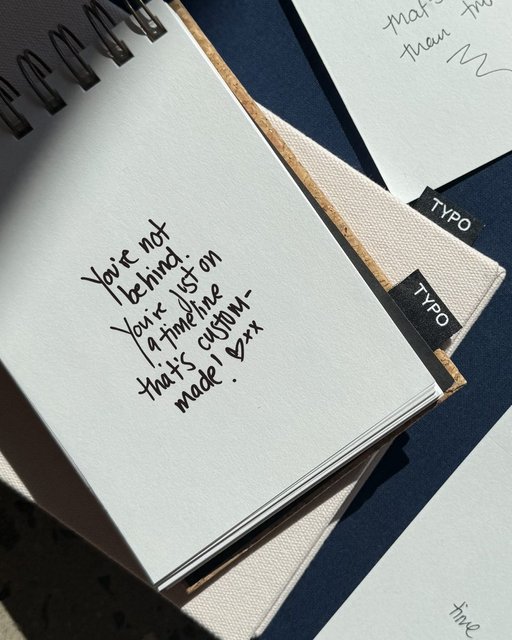 You're not
behind.
You're just on
a timeline
that's custom-
made! ♡xx
that's
than
TYPO
TYPO
time